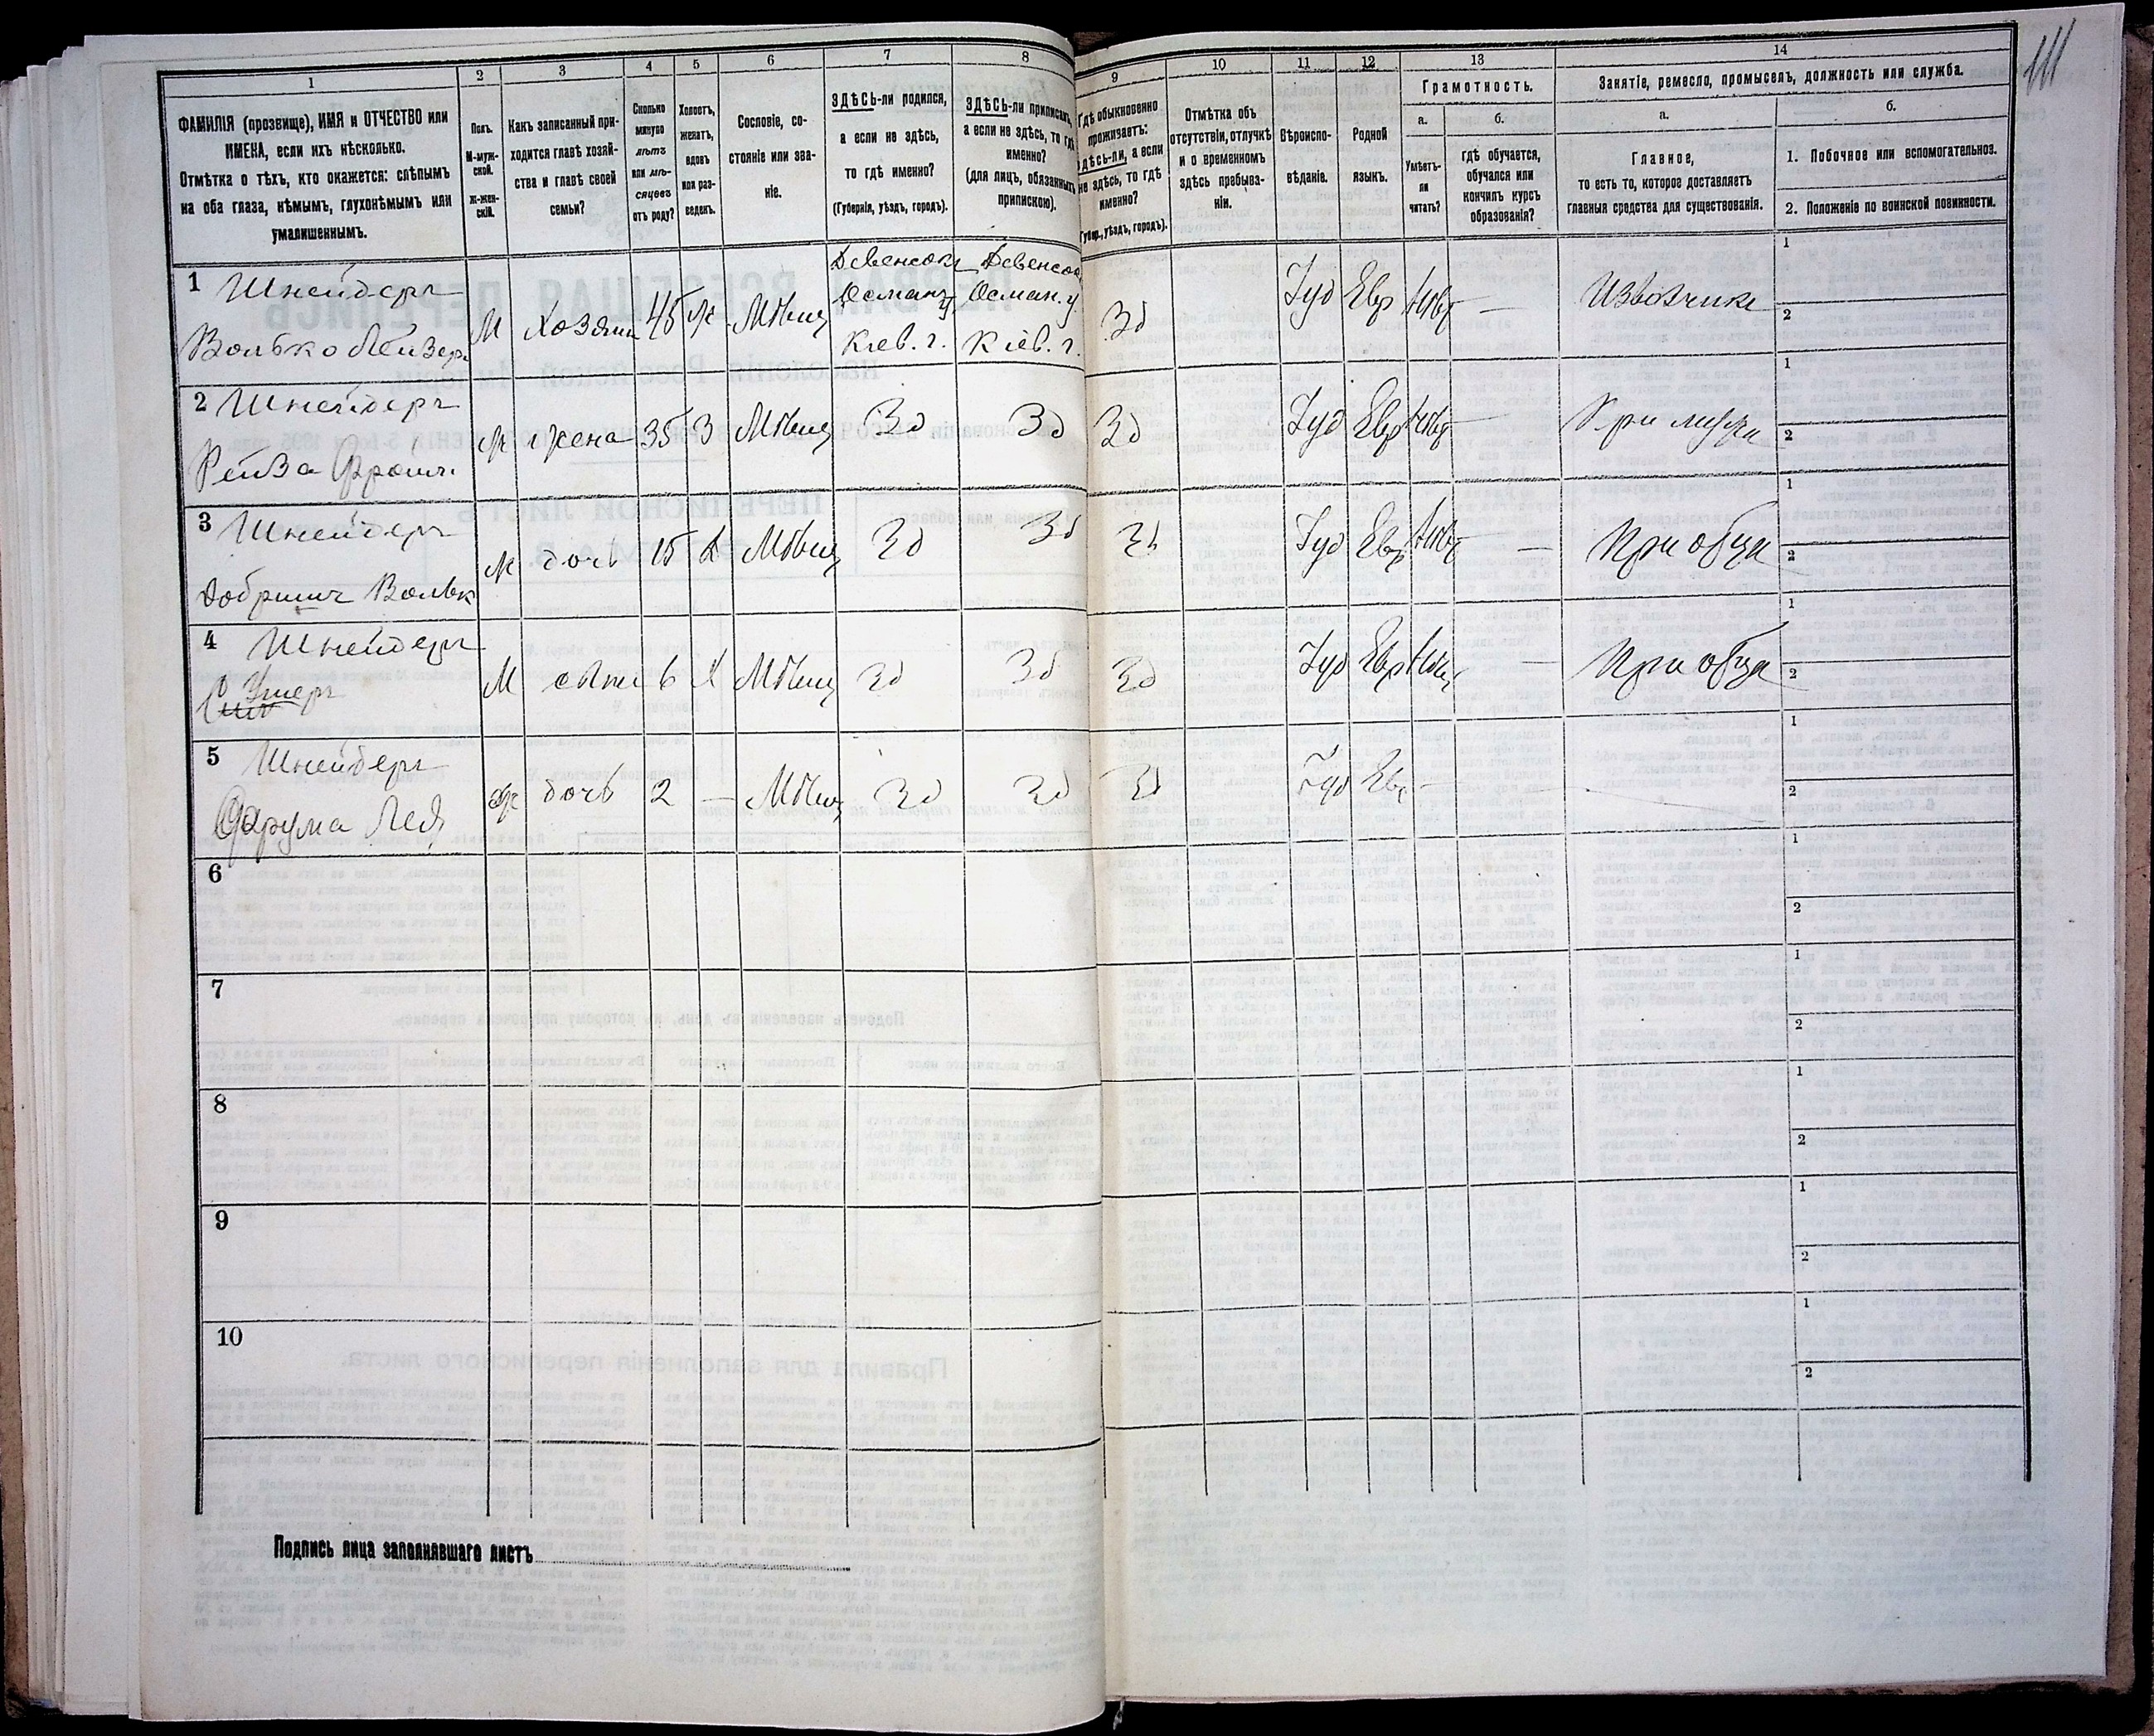 111
1
2
3
4
5
6
7
8
9
10
11
12
13
14
ФАМИЛІЯ (прозвище), ИМЯ и ОТЧЕСТВО или
ИМЕНА, если ихъ нѣсколько.
Отмѣтка о тѣхъ, кто окажется: слѣпымъ
на оба глаза, нѣмымъ, глухонѣмымъ или
умалишеннымъ.
Полъ.
М-муж-
ской.
Ж-жен-
скій.
Какъ записанный при-
ходится главѣ хозяй-
ства и главѣ своей
семьи?
Сколько
минуло
лѣтъ
или мѣ-
сяцевъ
отъ роду?
Холостъ,
женатъ,
вдовъ
или раз-
веденъ.
Сословіе, со-
стояніе или зва-
ніе.
ЗДѢСЬ-ли родился,
а если не здѣсь,
то гдѣ именно?
(Губернія, уѣздъ, городъ).
ЗДѢСЬ-ли приписанъ,
а если не здѣсь, то гдѣ
именно?
(для лицъ, обязанныхъ
припискою).
Гдѣ обыкновенно
проживаетъ:
здѣсь-ли, а если
не здѣсь, то гдѣ
именно?
(Губер., уѣздъ, городъ).
Отмѣтка объ
отсутствіи, отлучкѣ
и о временномъ
здѣсь пребыва-
ніи.
Вѣроиспо-
вѣданіе.
Родной
языкъ.
Грамотность.
а.
Умѣетъ-
ли
читать?
б.
гдѣ обучается,
обучался или
кончилъ курсъ
образованія?
Занятіе, ремесло, промыселъ, должность или служба.
а.
Главное,
то есть то, которое доставляетъ
главныя средства для существованія.
б.
1. Побочное или вспомогательное.
2. Положеніе по воинской повинности.
1 Шнейдеръ
Волько Лейзер
М Хозяин 45 ж Мѣщ
Кіев. г.
Кіев. г.
Зд Іуд Евр — Извозчикъ
1
2
2 Шнейдеръ
Рейза
ж жена 35 З Мѣщ Зд Зд Зд Іуд Евр — При мужѣ
1
2
3 Шнейдеръ
Вольк
дочь 15 Мѣщ Зд Зд Зд Іуд Евр — При отцѣ
1
2
4 Шнейдеръ
Ушеръ
М сынъ 6 Х Мѣщ Зд Зд Зд Іуд Евр — При отцѣ
1
2
5 Шнейдеръ
Фрума Лея
ж дочь 2 — Мѣщ Зд Зд Зд Іуд Евр — —
1
2
6
1
2
7
1
2
8
1
2
9
1
2
10
1
2
Подпись лица заполнявшаго листъ